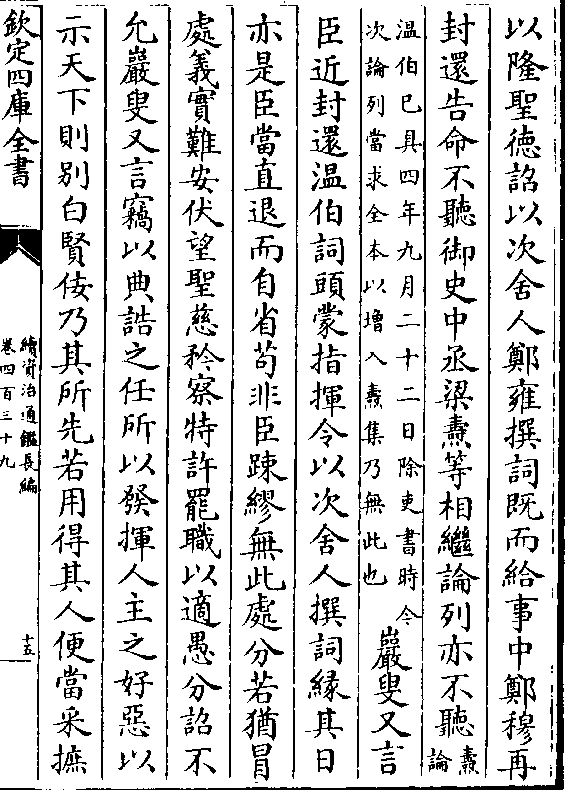 以隆聖徳詔以次舍人鄭雍撰詞既而給事中鄭穆再
封還告命不聽御史中丞梁燾等相繼論列亦不聽燾
論
温伯已具四年九月二十二日除吏書時今
次論列當求全本以增入燾集乃無此也
巖叟又言
臣近封還温伯詞頭蒙指揮令以次舍人撰詞縁其日
亦是臣當直退而自省苟非臣踈繆無此處分若猶冒
處義實難安伏望聖慈矜察特許罷職以適愚分詔不
允巖叟又言竊以典誥之任所以發揮人主之好惡以
示天下則别白賢佞乃其所先若用得其人便當采摭
欽定四庫全書
續資治通鑑長編
卷四百三十九
十五